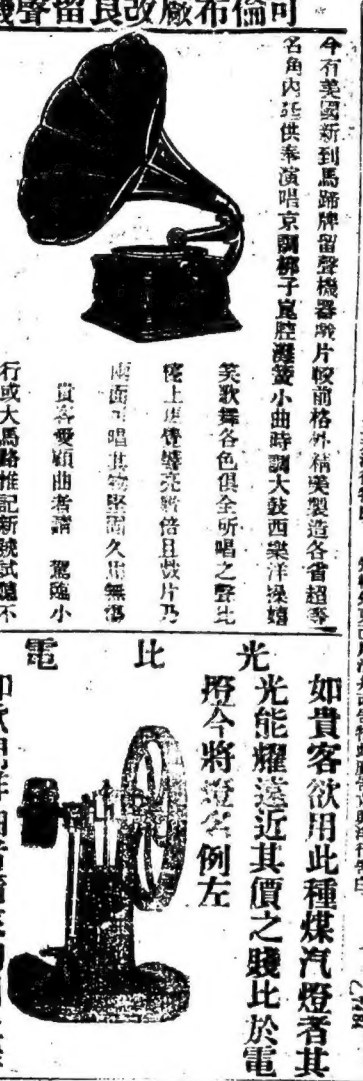 可倫布廠改良留聲機
今有美國新到馬蹄牌留聲機器戲片較前格外精美製造各省超等
名角內廷供奉演唱京調梆子崑腔灘簧小曲時調大鼓西樂洋操嬉
笑歌舞各色俱全所唱之聲比
上聲響亮數倍且戲片乃
兩面可唱其物堅固久用無傷
貴客愛顧曲者請 駕臨小
行或大馬路惟記新號試聽不
光比電
如貴客欲用此種煤汽燈者其
光能耀遠近其價之賤比於電
燈今將燈名例左